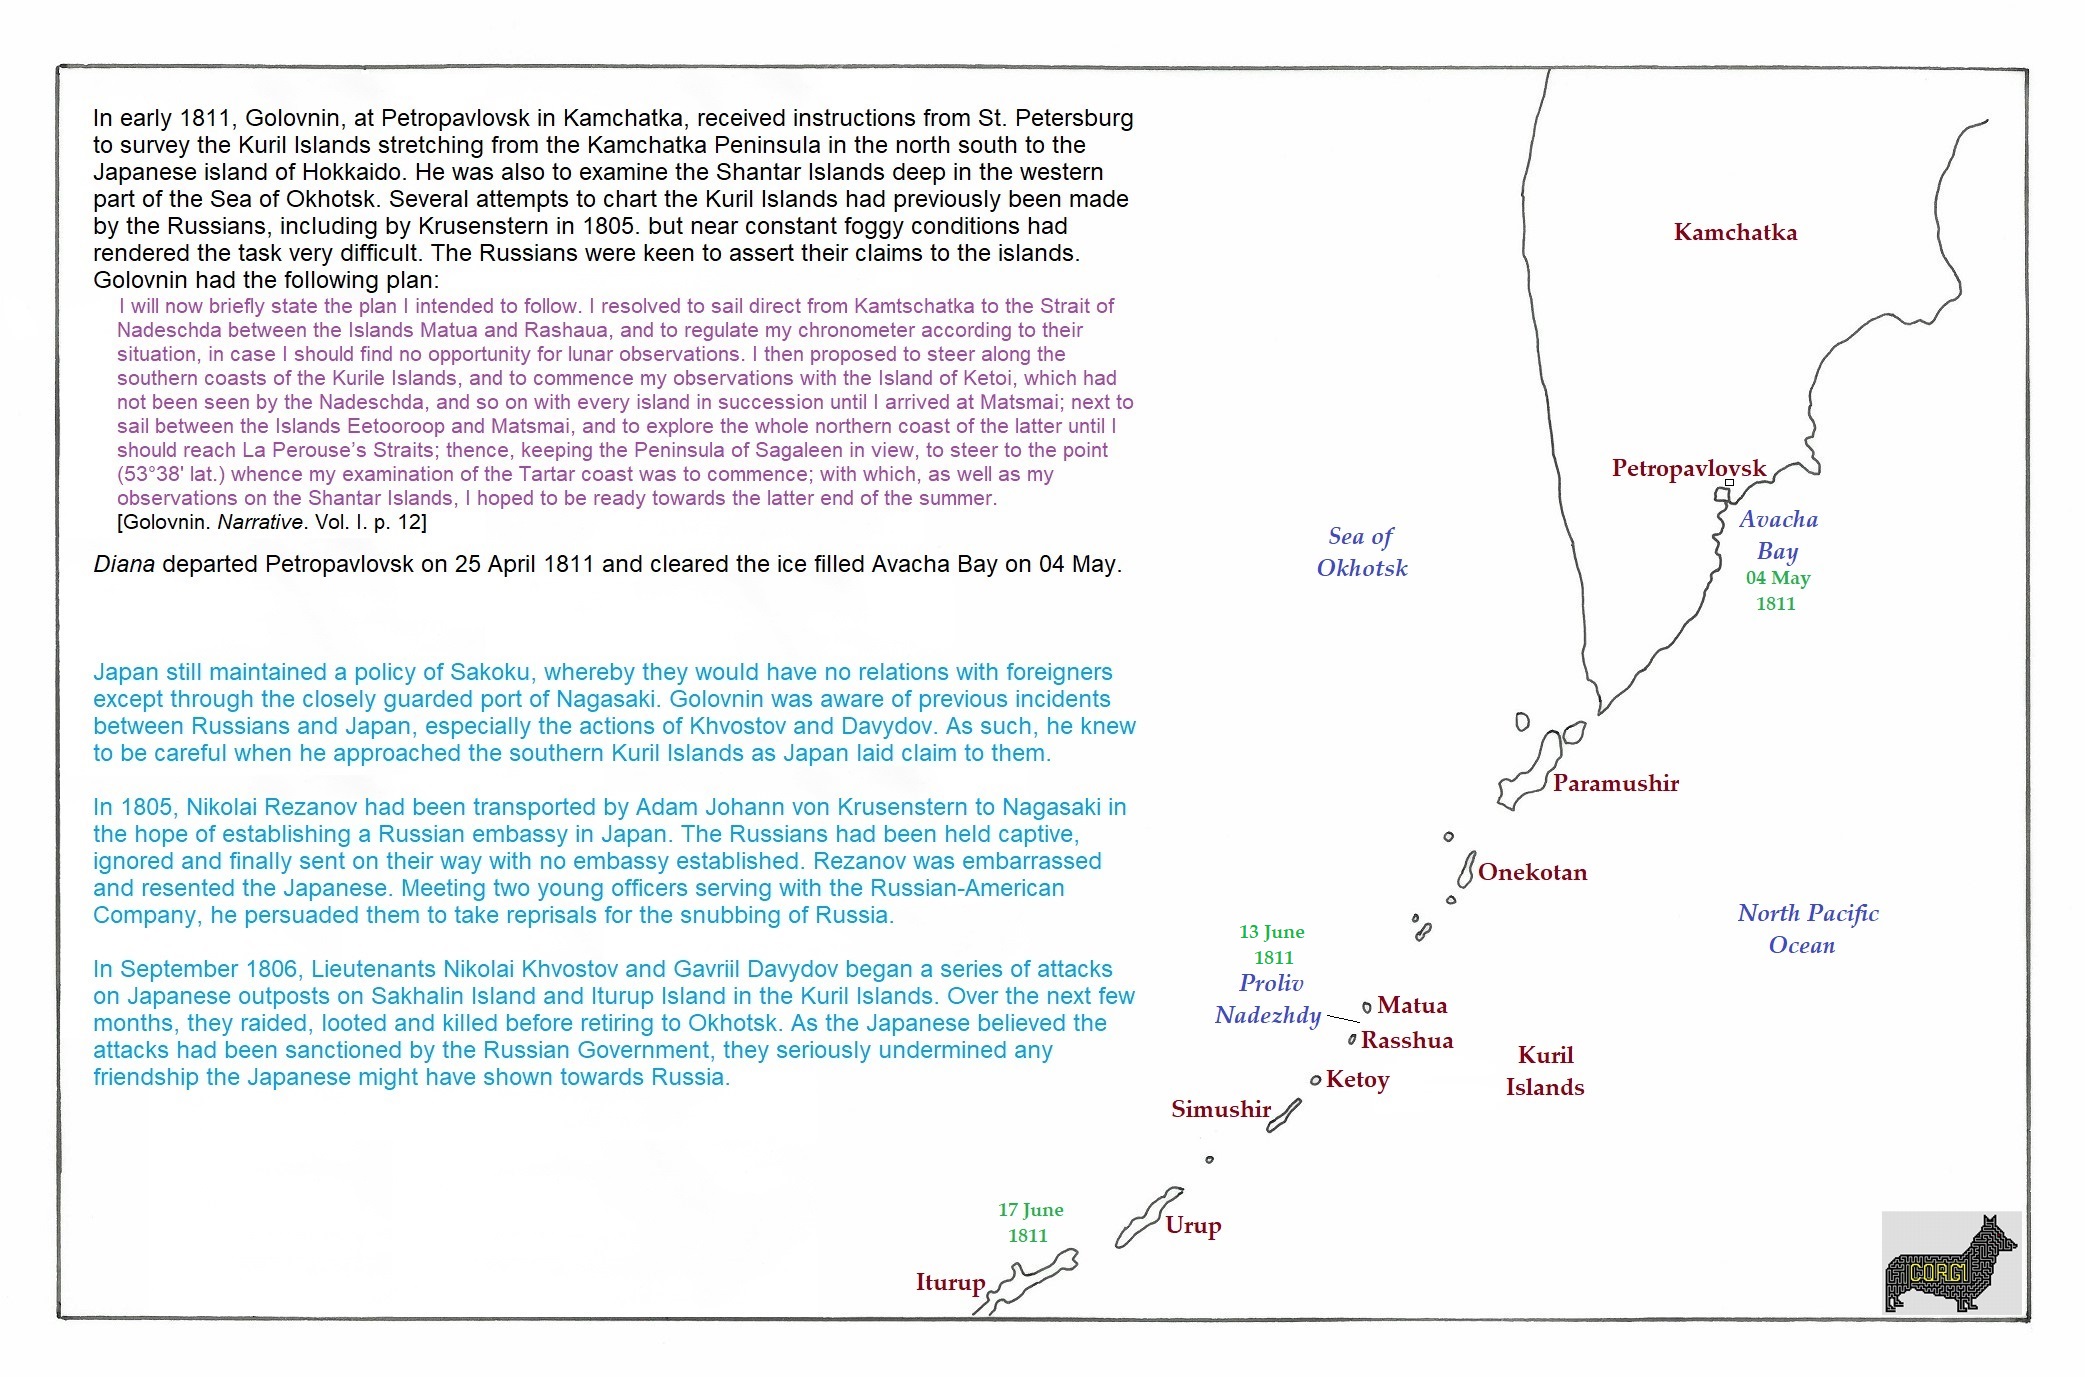 In early 1811, Golovnin, at Petropavlovsk in Kamchatka, received instructions from St. Petersburg
to survey the Kuril Islands stretching from the Kamchatka Peninsula in the north south to the
Japanese island of Hokkaido. He was also to examine the Shantar Islands deep in the western
part of the Sea of Okhotsk. Several attempts to chart the Kuril Islands had previously been made
by the Russians, including by Krusenstern in 1805. but near constant foggy conditions had
rendered the task very difficult. The Russians were keen to assert their claims to the islands.
Golovnin had the following plan:
I will now briefly state the plan I intended to follow. I resolved to sail direct from Kamtschatka to the Strait of
Nadeschda between the Islands Matua and Rashaua, and to regulate my chronometer according to their
situation, in case I should find no opportunity for lunar observations. I then proposed to steer along the
southern coasts of the Kurile Islands, and to commence my observations with the Island of Ketoi, which had
not been seen by the Nadeschda, and so on with every island in succession until I arrived at Matsmai; next to
sail between the Islands Eetooroop and Matsmai, and to explore the whole northern coast of the latter until I
should reach La Perouse's Straits; thence, keeping the Peninsula of Sagaleen in view, to steer to the point
(53°38' lat.) whence my examination of the Tartar coast was to commence; with which, as well as my
observations on the Shantar Islands, I hoped to be ready towards the latter end of the summer.
[Golovnin. Narrative. Vol. I. p. 12]
Diana departed Petropavlovsk on 25 April 1811 and cleared the ice filled Avacha Bay on 04 May.
Japan still maintained a policy of Sakoku, whereby they would have no relations with foreigners
except through the closely guarded port of Nagasaki. Golovnin was aware of previous incidents
between Russians and Japan, especially the actions of Khvostov and Davydov. As such, he knew
to be careful when he approached the southern Kuril Islands as Japan laid claim to them.
In 1805, Nikolai Rezanov had been transported by Adam Johann von Krusenstern to Nagasaki in
the hope of establishing a Russian embassy in Japan. The Russians had been held captive,
ignored and finally sent on their way with no embassy established. Rezanov was embarrassed
and resented the Japanese. Meeting two young officers serving with the Russian-American
Company, he persuaded them to take reprisals for the snubbing of Russia.
In September 1806, Lieutenants Nikolai Khvostov and Gavriil Davydov began a series of attacks
on Japanese outposts on Sakhalin Island and Iturup Island in the Kuril Islands. Over the next few
months, they raided, looted and killed before retiring to Okhotsk. As the Japanese believed the
attacks had been sanctioned by the Russian Government, they seriously undermined any
friendship the Japanese might have shown towards Russia.
Kamchatka
Petropavlovsk
Avacha
Bay
04 May
1811
Sea of
Okhotsk
Paramushir
Onekotan
North Pacific
Ocean
13 June
1811
Proliv
Nadezhdy
Matua
Rasshua
Kuril
Islands
Ketoy
Simushir
Urup
17 June
1811
Iturup
CORGI